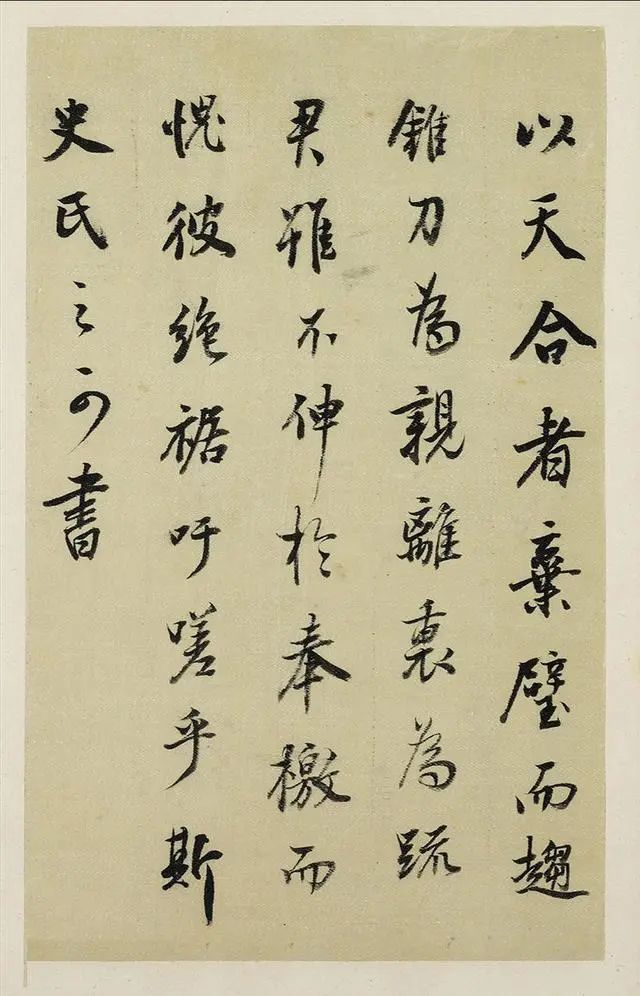 以天合者棄璧而趨
錐刀為親離裏為疏
君雖不伸於奉檄而
愧彼絶裾吁嗟乎斯
史氏之可書